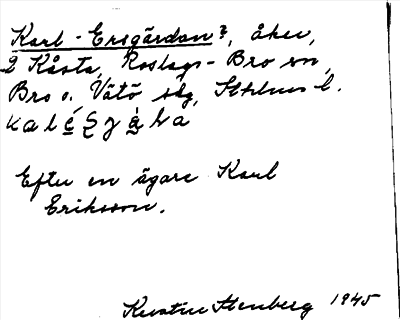 Karl-Ersgärdan?, åker,
2 Kåsta, Roslags-Bro sn,
Bro o. Vätö sdg, Sthlms l.
Efter en ägare Karl
Eriksson.
Kerstin Stenberg 1945